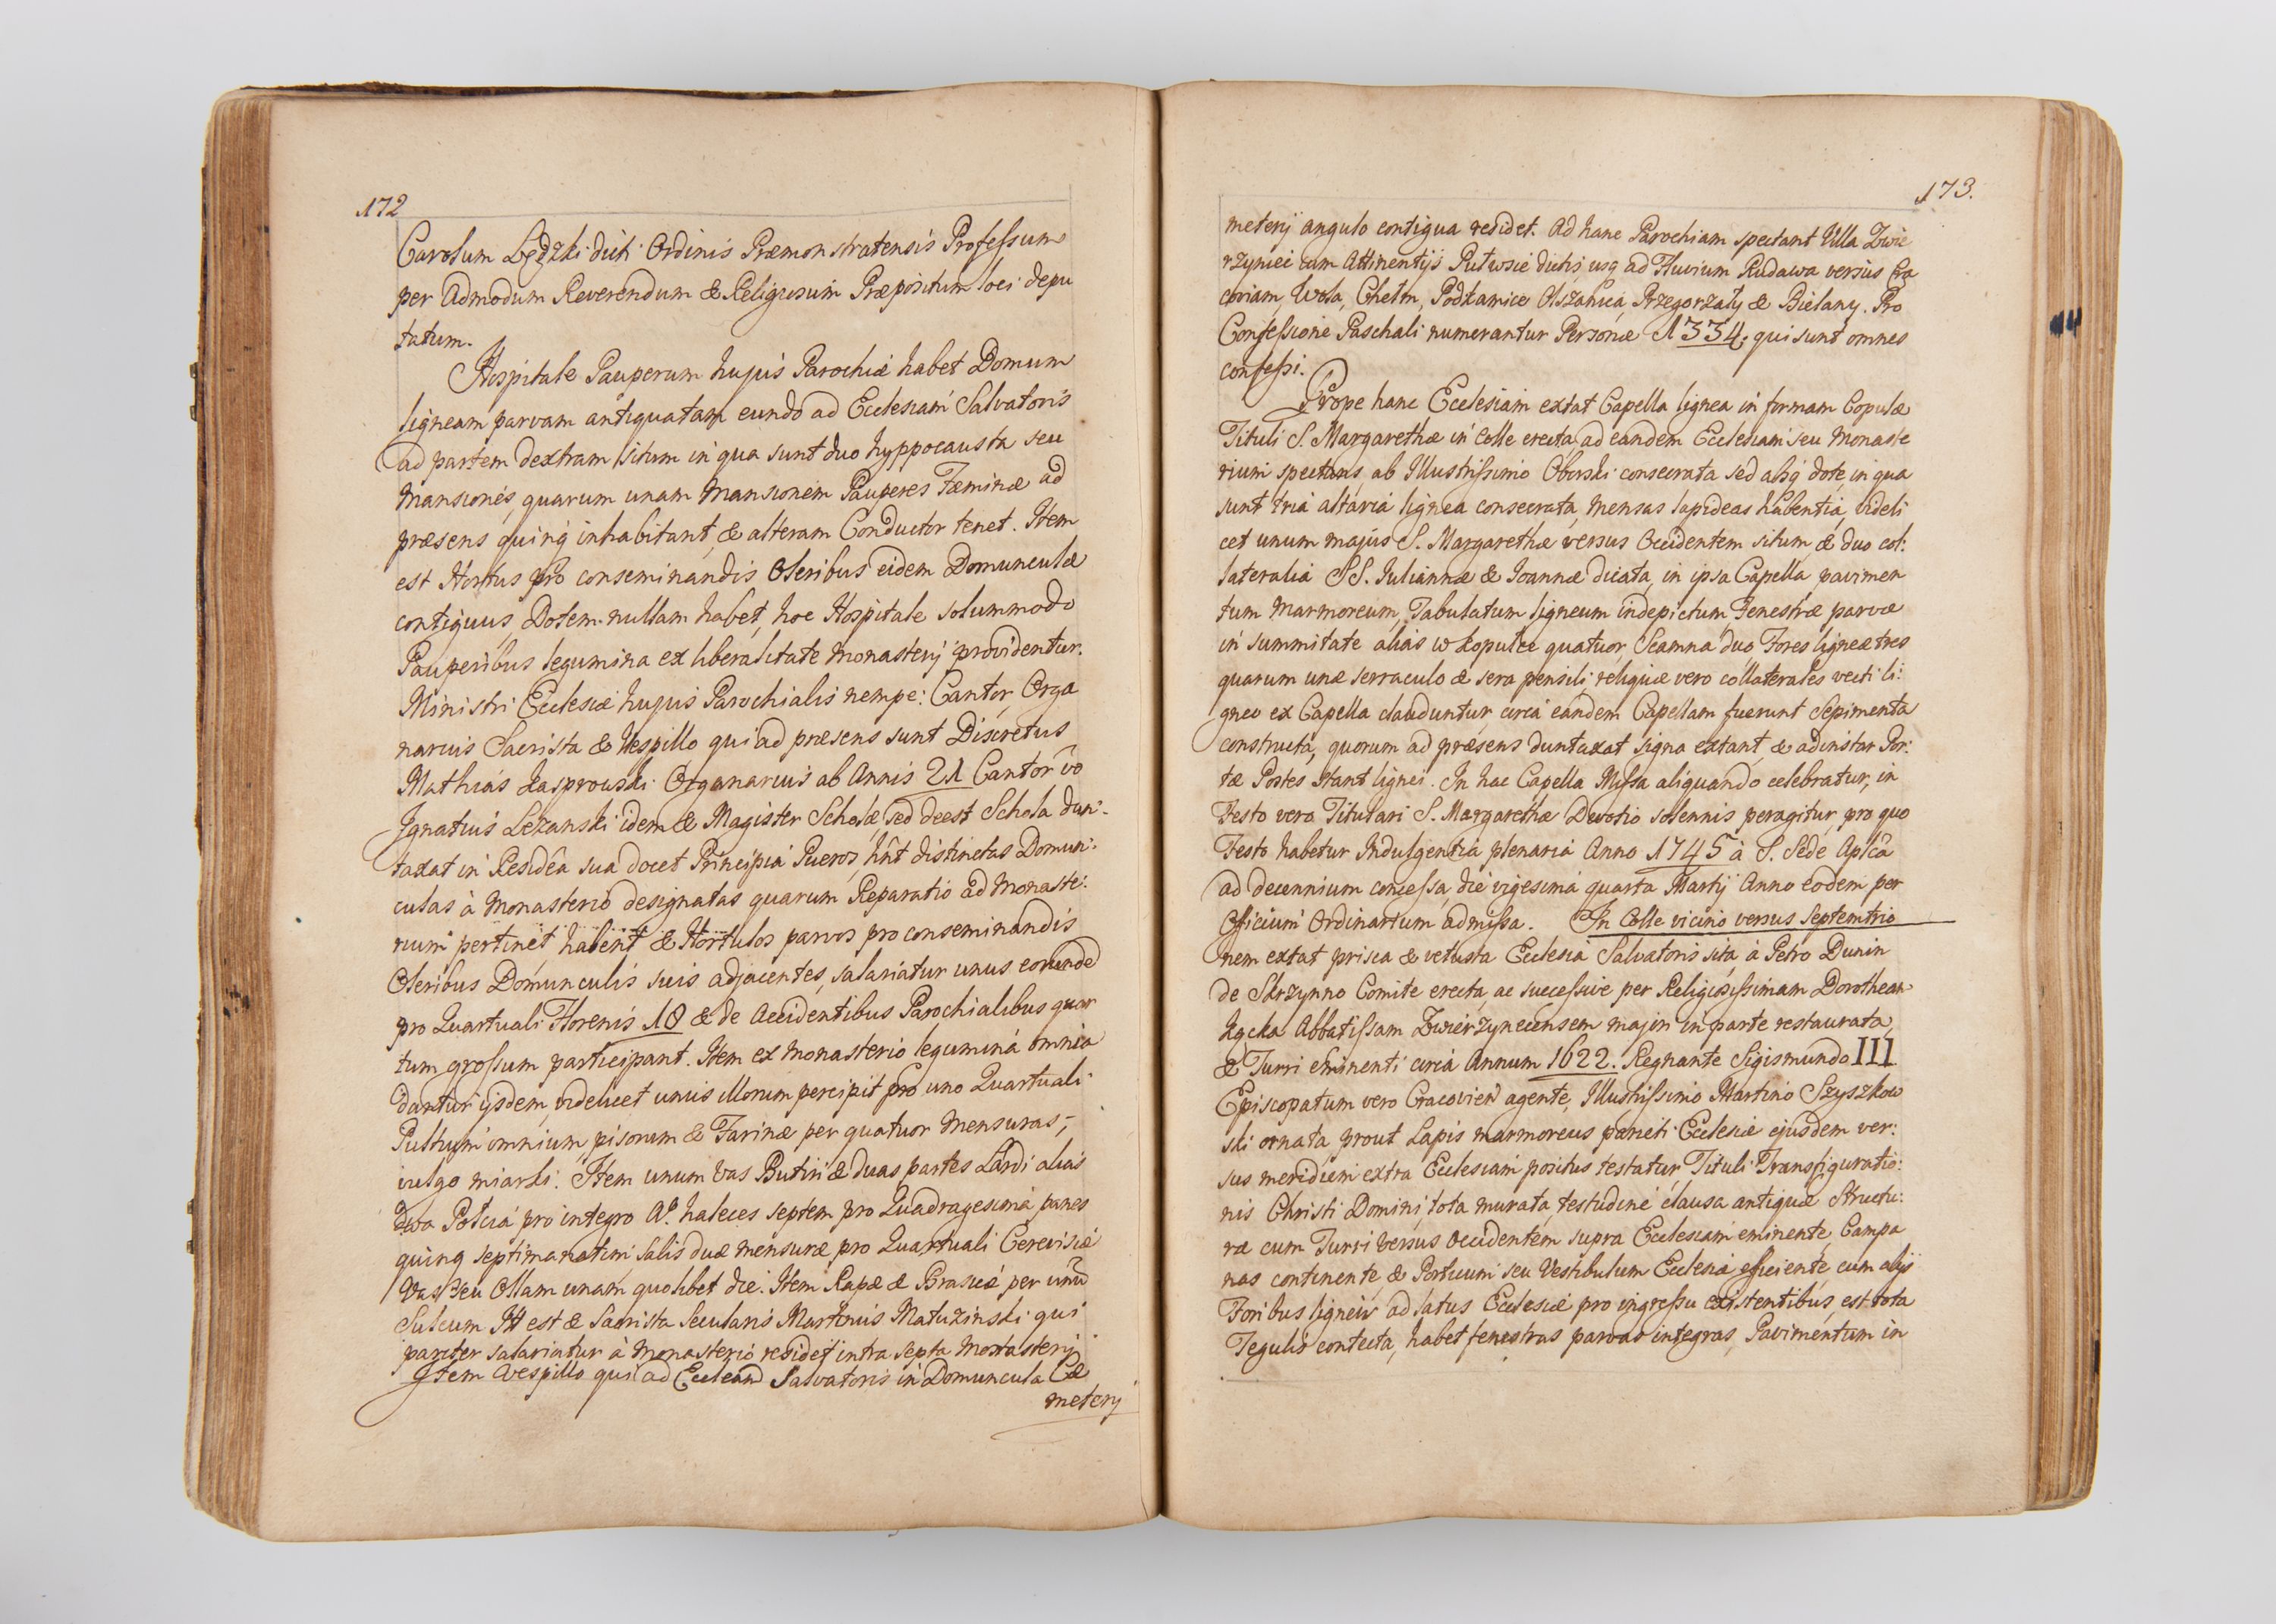 172
Carolum Lędzki dicti Ordinis Præmonstratensis Professum
per Admodum Reverendum & Religiosum Præpositum loci depu
tatum.
Hospitale Pauperum hujus Parochiæ habet Domum
ligneam parvam antiquatam eundo ad Ecclesiam Salvatoris
ad partem dextram sitam in qua sunt duo hyppocausta seu
Mansiones, quarum unam Mansionem Pauperes Fæminæ ad
præsens quinq inhabitant, & alteram Conductor tenet. Item
est Hortus pro conseminandis Oleribus eidem Domunculæ
contiguus, Dotem nullam habet, hoc Hospitale solummodo
Pauperibus legumina ex liberalitate Monasterij providentur.
Ministri Ecclesiæ hujus Parochialis nempe: Cantor, Orga
narius Sacrista & Vespillo qui ad præsens sunt Discretus
Mathias Kasprowski Organarius ab Annis 21 Cantor vo
Ignatius Lezanski idem & Magister Scholæ, sed deest Schola dun-
taxat in Residêa sua docet Principia Pueros, hnt distinctas Domun:
culas à Monasterio designatas quarum Reparatio ad Monaste:
rium pertinet, habent & Hortulos parvos pro conseminandis
Oleribus Domunculis suis adjacentes, salariatur unus eorunde
pro Quartuali Florenis 18 & de Accidentibus Parochialibus quar
tum grossum participant. Item ex Monasterio legumina omnia
dantur ijsdem, videlicet unus illorum percipit pro uno Quartuali
Pultum omnium, pisorum & Farinæ per quatuor Mensuras,
vulgo miarki. Item unum Vas Butiri & duas partes Lardi alias
dwa Połcia pro integro Aº. haleces septem pro Quadragesima, panes
quinq septimanatim salis duæ mensuræ pro Quartuali Cerevisiæ
Vas seu Ollam unam quolibet die. Item Rapæ & Brasicæ per unu
Sulcum It est & Sacrista Secularis Martinus Matuzinski qui
pariter salariatur à Monasterio residet intra septa Monasterij
Item Vespillo qui ad Eccleam Salvatoris in Domuncula Cæ
meterij
173.
meterij angulo contigua residet. Ad hanc Parochiam spectant Villa Zwie
rzyniec cum Attinentijs Pułwsie dictis usq ad Fluvium Rudawa versus Cra
coviam, Wola, Chełm, Podkamice Olszanica, Przegorzały & Bielany. Pro
Confessione Paschali numerantur Personæ 1334. qui sunt omnes
confessi.
Prope hanc Ecclesiam extat Capella lignea in formam Copulæ
Tituli S. Margarethæ in Colle erecta ad eandem Ecclesiam seu Monaste
rium spectans, ab Illustrissimo Oborski consecrata sed absq dote, in qua
sunt tria altaria lignea consecrata, mensas lapideas habentia, videli
cet unum majus S. Margarethæ versus Occidentem situm & duo col:
lateralia SS. Juliannæ & Joannæ dicata, in ipsa Capella, pavimen
tum Marmoreum, Tabulatum ligneum indepictum, Fenestræ parvæ
in summitate alias w kopulce quatuor, Scamna duo, Fores ligneæ tres
quarum unæ serraculo & sera pensili, reliquæ vero collaterales vecti li:
gneo ex Capella clauduntur, circa eandem Capellam fuerunt Sepimenta
constructa, quorum ad præsens duntaxat signa extant, & adinstar Por:
tæ Postes stant lignei. In hac Capella Missa aliquando celebratur, in
Festo vero Titulari S. Margarethæ Devotio solennis peragitur, pro quo
Festo habetur Indulgentia plenaria Anno 1745 à S. Sede Aplcâ
ad decennium concessa, die vigesima quarta Martij Anno eodem per
Officium Ordinarium admissa. In Colle vicino versus Septemtrio
nem extat prisca & vetusta Ecclesia Salvatoris sita, à Petro Dunin
de Skrzynno Comite erecta, ac successive per Religiosissimam Dorotheam
Kącka Abbatissam Zwierzynecensem majori in parte restaurata,
& Turri eminenti circa Annum 1622. Regnante Sigismundo III
Episcopatum vero Cracovien agente, Illustrissimo Martino Szyszkow
ski ornata, prout Lapis marmoreus parieti Ecclesiæ ejusdem ver:
sus meridiem extra Ecclesiam positus testatur, Tituli Transfiguratio:
nis Christi Domini, tota murata, testudine clausa antiquæ Structu:
ræ cum Turri versus Occidentem supra Ecclesiam eminente, Campa
nas continente, & Porticum seu Vestibulum Ecclesiæ efficiente, cum alijs
Foribus ligneis ad latus Ecclesiæ pro ingressu existentibus, est tota
Tegulis contecta, habet fenestras parvas integras, Pavimentum in